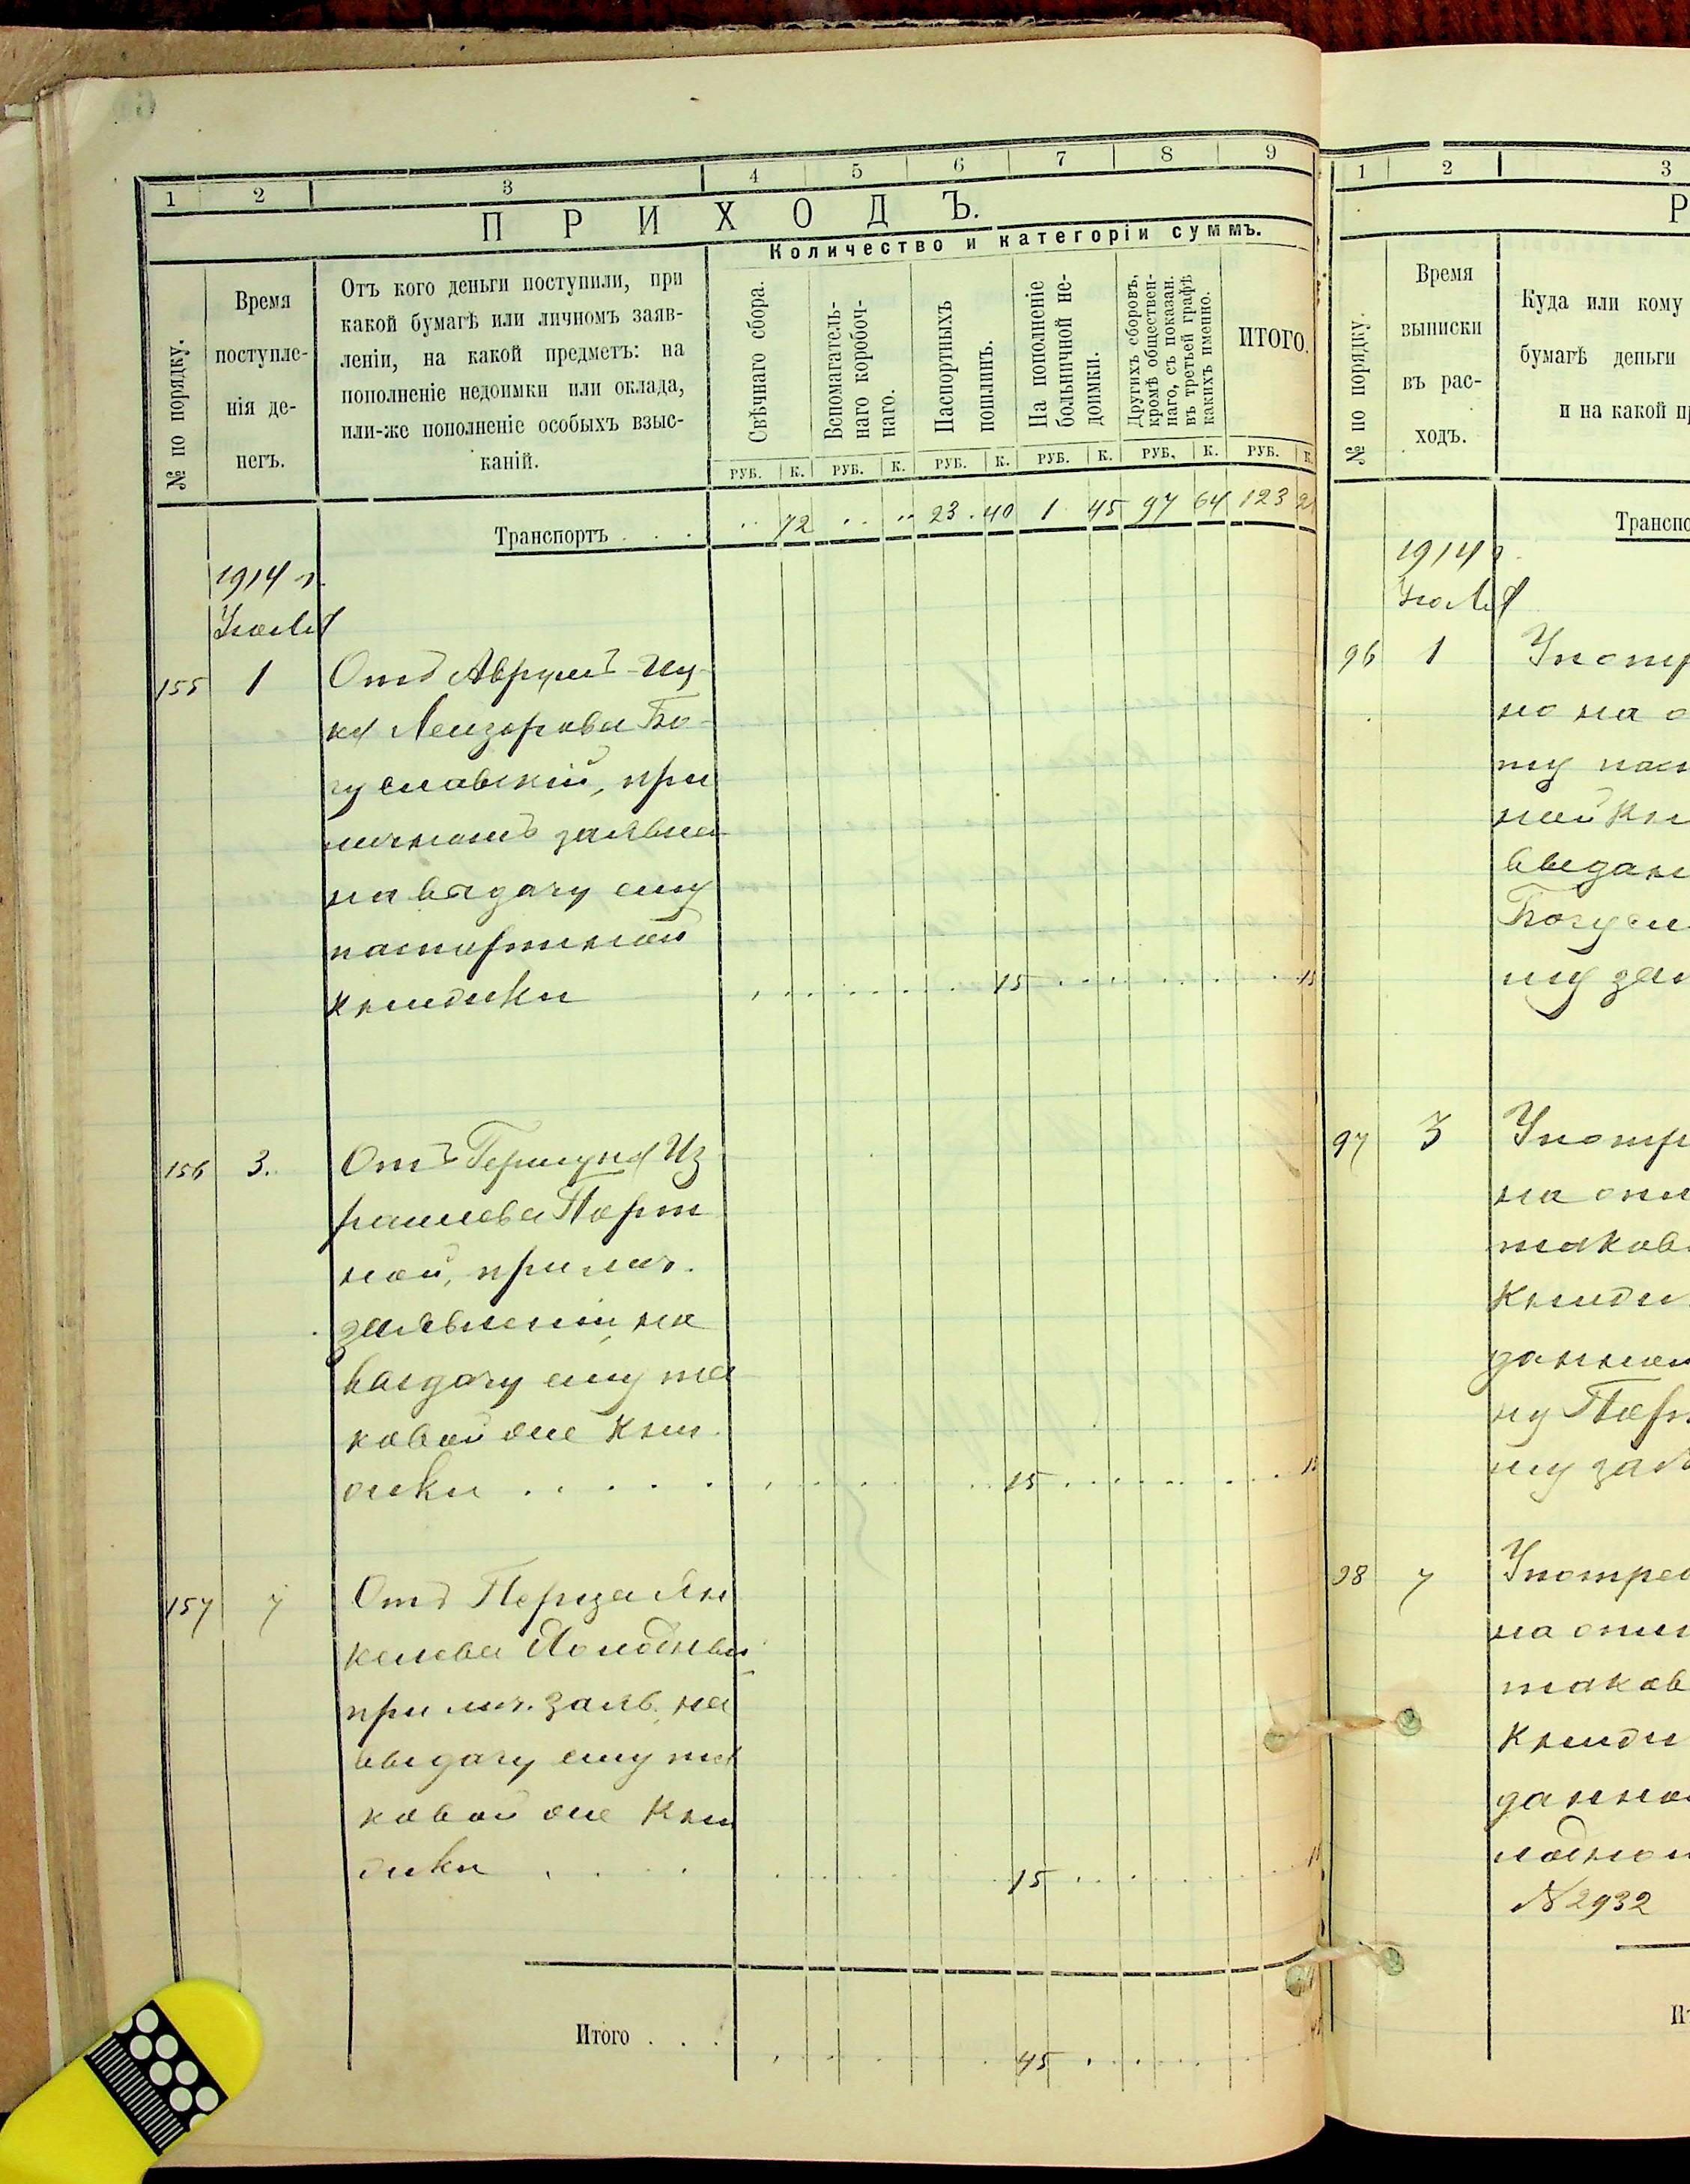 1 2 3 4 5 6 7 8 9
ПРИХОДЪ.
Количество и категоріи суммъ.
№ по порядку.
Время
поступле-
нія де-
негъ.
Отъ кого деньги поступили, при
какой бумагѣ или личномъ заяв-
леніи, на какой предметъ: на
пополненіе недоимки или оклада,
или-же пополненіе особыхъ взыс-
каній.
Свѣчнаго сбора.
Вспомагатель-
наго коробоч-
наго.
Паспортныхъ
пошлинъ.
На пополненіе
больничной не-
доимки.
Другихъ сборовъ,
кромѣ обществен-
наго, съ показан.
въ третьей графѣ
какихъ именно.
ИТОГО.
РУБ. К. РУБ. К. РУБ. К. РУБ. К. РУБ. К. РУБ. К.
Транспортъ . . . 72 23 40 1 45 97 64 123 21
1914 г.
Іюля
155 1 Отъ Аврумъ-Иц-
ка Лейзорова Бо-
гуславскій, при
личномъ заявле
на выдачу ему
паспортной
книжки 15 15
156 3. Отъ Гершуна Из
раилева Порт
ной, при лич.
заявленіи, на
выдачу ему та
ковой же кни
жки . . . . . 15 15
157 7 Отъ Перца Ян
келева Холодный
при лич. заяв. на
выдачу ему та
ковой же кни
жки . . . . 15 15
Итого . . . 45 45
1 2 3
Р
№ по порядку.
Время
выписки
въ рас-
ходъ.
Куда или кому
бумагѣ деньги
и на какой п
Транспо
1914 г.
Іюля
96 1 Употр
но на о
ту пас
ной кн
выдан
Богусл
му зая
97 3 Употр
на опл
таков
книжк
данной
ну Порт
му зая
98 7 Употреб
на опл
таков
книжк
данной
лодном
№ 2932
Ит